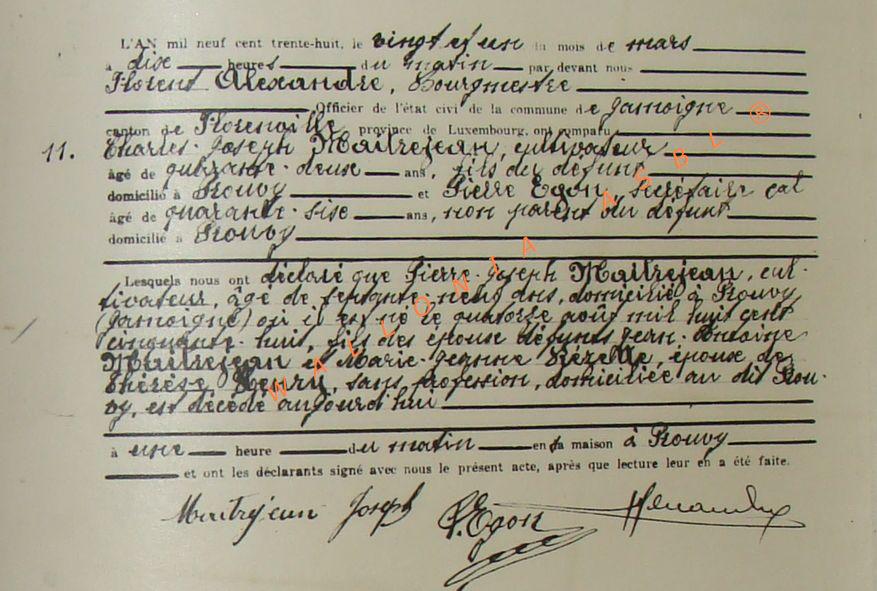 L'AN mil neuf cent trente-huit, le vingt et un du mois de mars
à dix heures du matin par devant nous
Florent Alexandre, Bourgmestre
Officier de l'état civi de la commune de Jamoigne
canton de Florenville province de Luxembourg, ont comparu
11. Charles-Joseph Maitrejean, cultivateur
âgé de quarante-deux ans, fils du défunt
domicilié à Prouvy et Pierre Egon, secrétaire cal
âgé de quarante-six ans, non parent du défunt
domicilié à Prouvy
Lesquels nous ont déclaré que Pierre-Joseph Maitrejean, cul-
tivateur, âgé de septante-neuf ans, domicilié à Prouvy
(Jamoigne) où il est né le quatorze août mil huit cent
cinquante-huit, fils des époux défunts Jean-Antoine
Maitrejean et Marie-Jeanne, épouse de
Thérèse Henry, sans profession, domiciliée au dit Prou-
vy, est décédé aujourd'hui
à une heure du matin en sa maison à Prouvy
et ont les déclarants signé avec nous le présent acte, après que lecture leur en a été faite.
Maitrejean Joseph P. Egon
WALLONIA ASBL ®